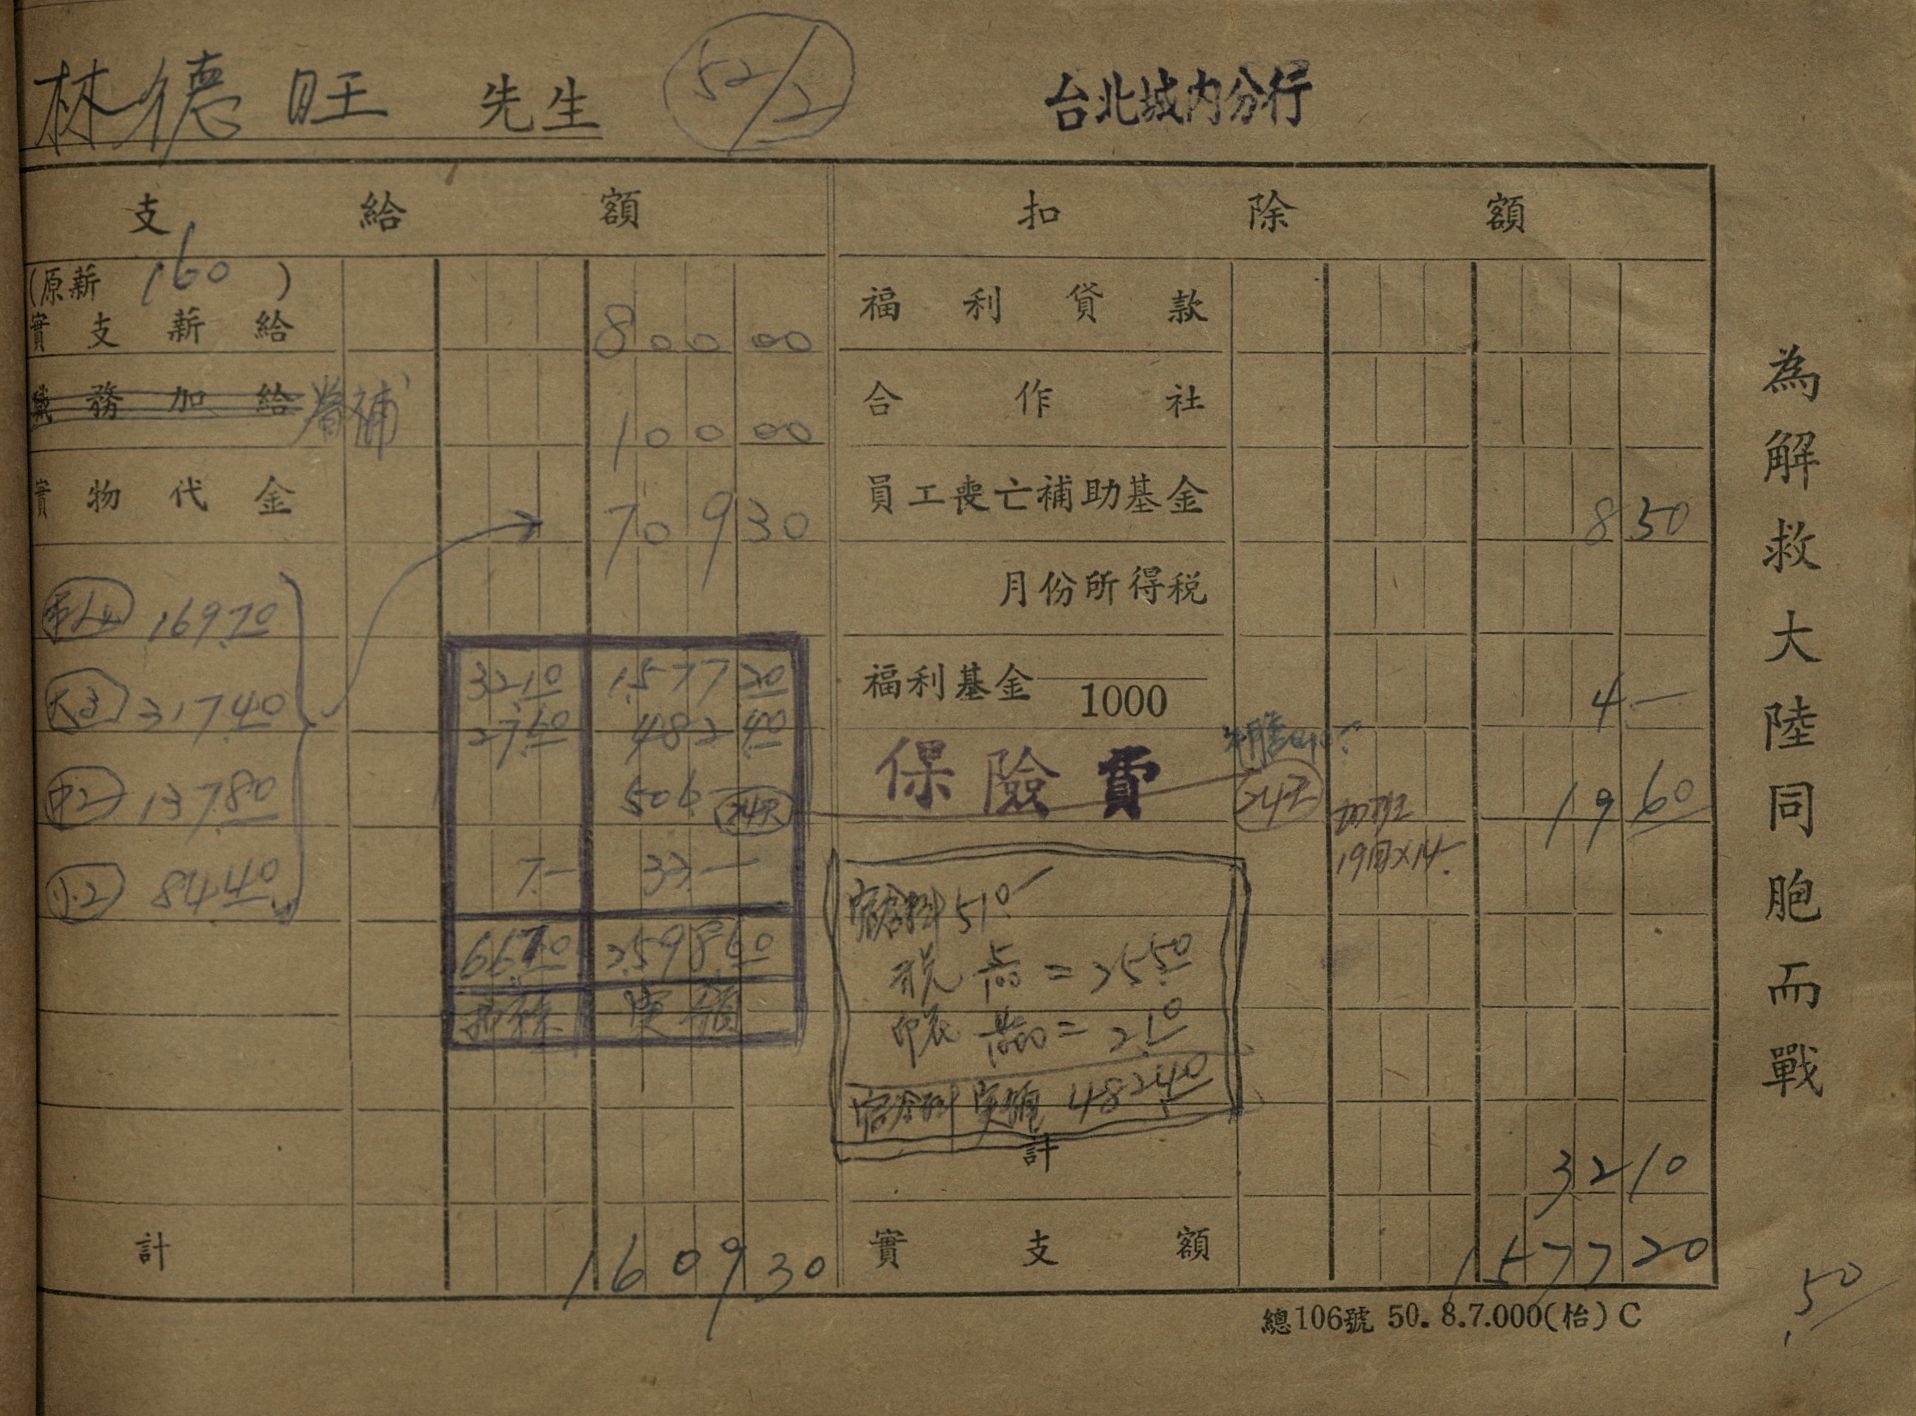 林德旺 先生 52/2 台北城内分行
支給額 扣除額
(原薪 160 )
實支薪給 800 00 福利貸款
職務加給 眷補 100 00 合作社
實物代金 709 30 員工喪亡補助基金 8 50
月份所得稅
169.70
大3 317.40
中2 137.80
小2 84.40
福利基金 1000 4.—
保險費 24天 19 60
加班
32.10 1,577.20
27.60 482.40
506.— 24天
7.— 33.—
66.70 2,598.60
扣除 実領
宿舍料 510.—
稅 = 25.50
印花 = 2.10
宿舍料 実領 482.40
計 32 10
計 1609 30 實支額 1577 20
總106號 50.8.7.000(怡)C
為解救大陸同胞而戰
50